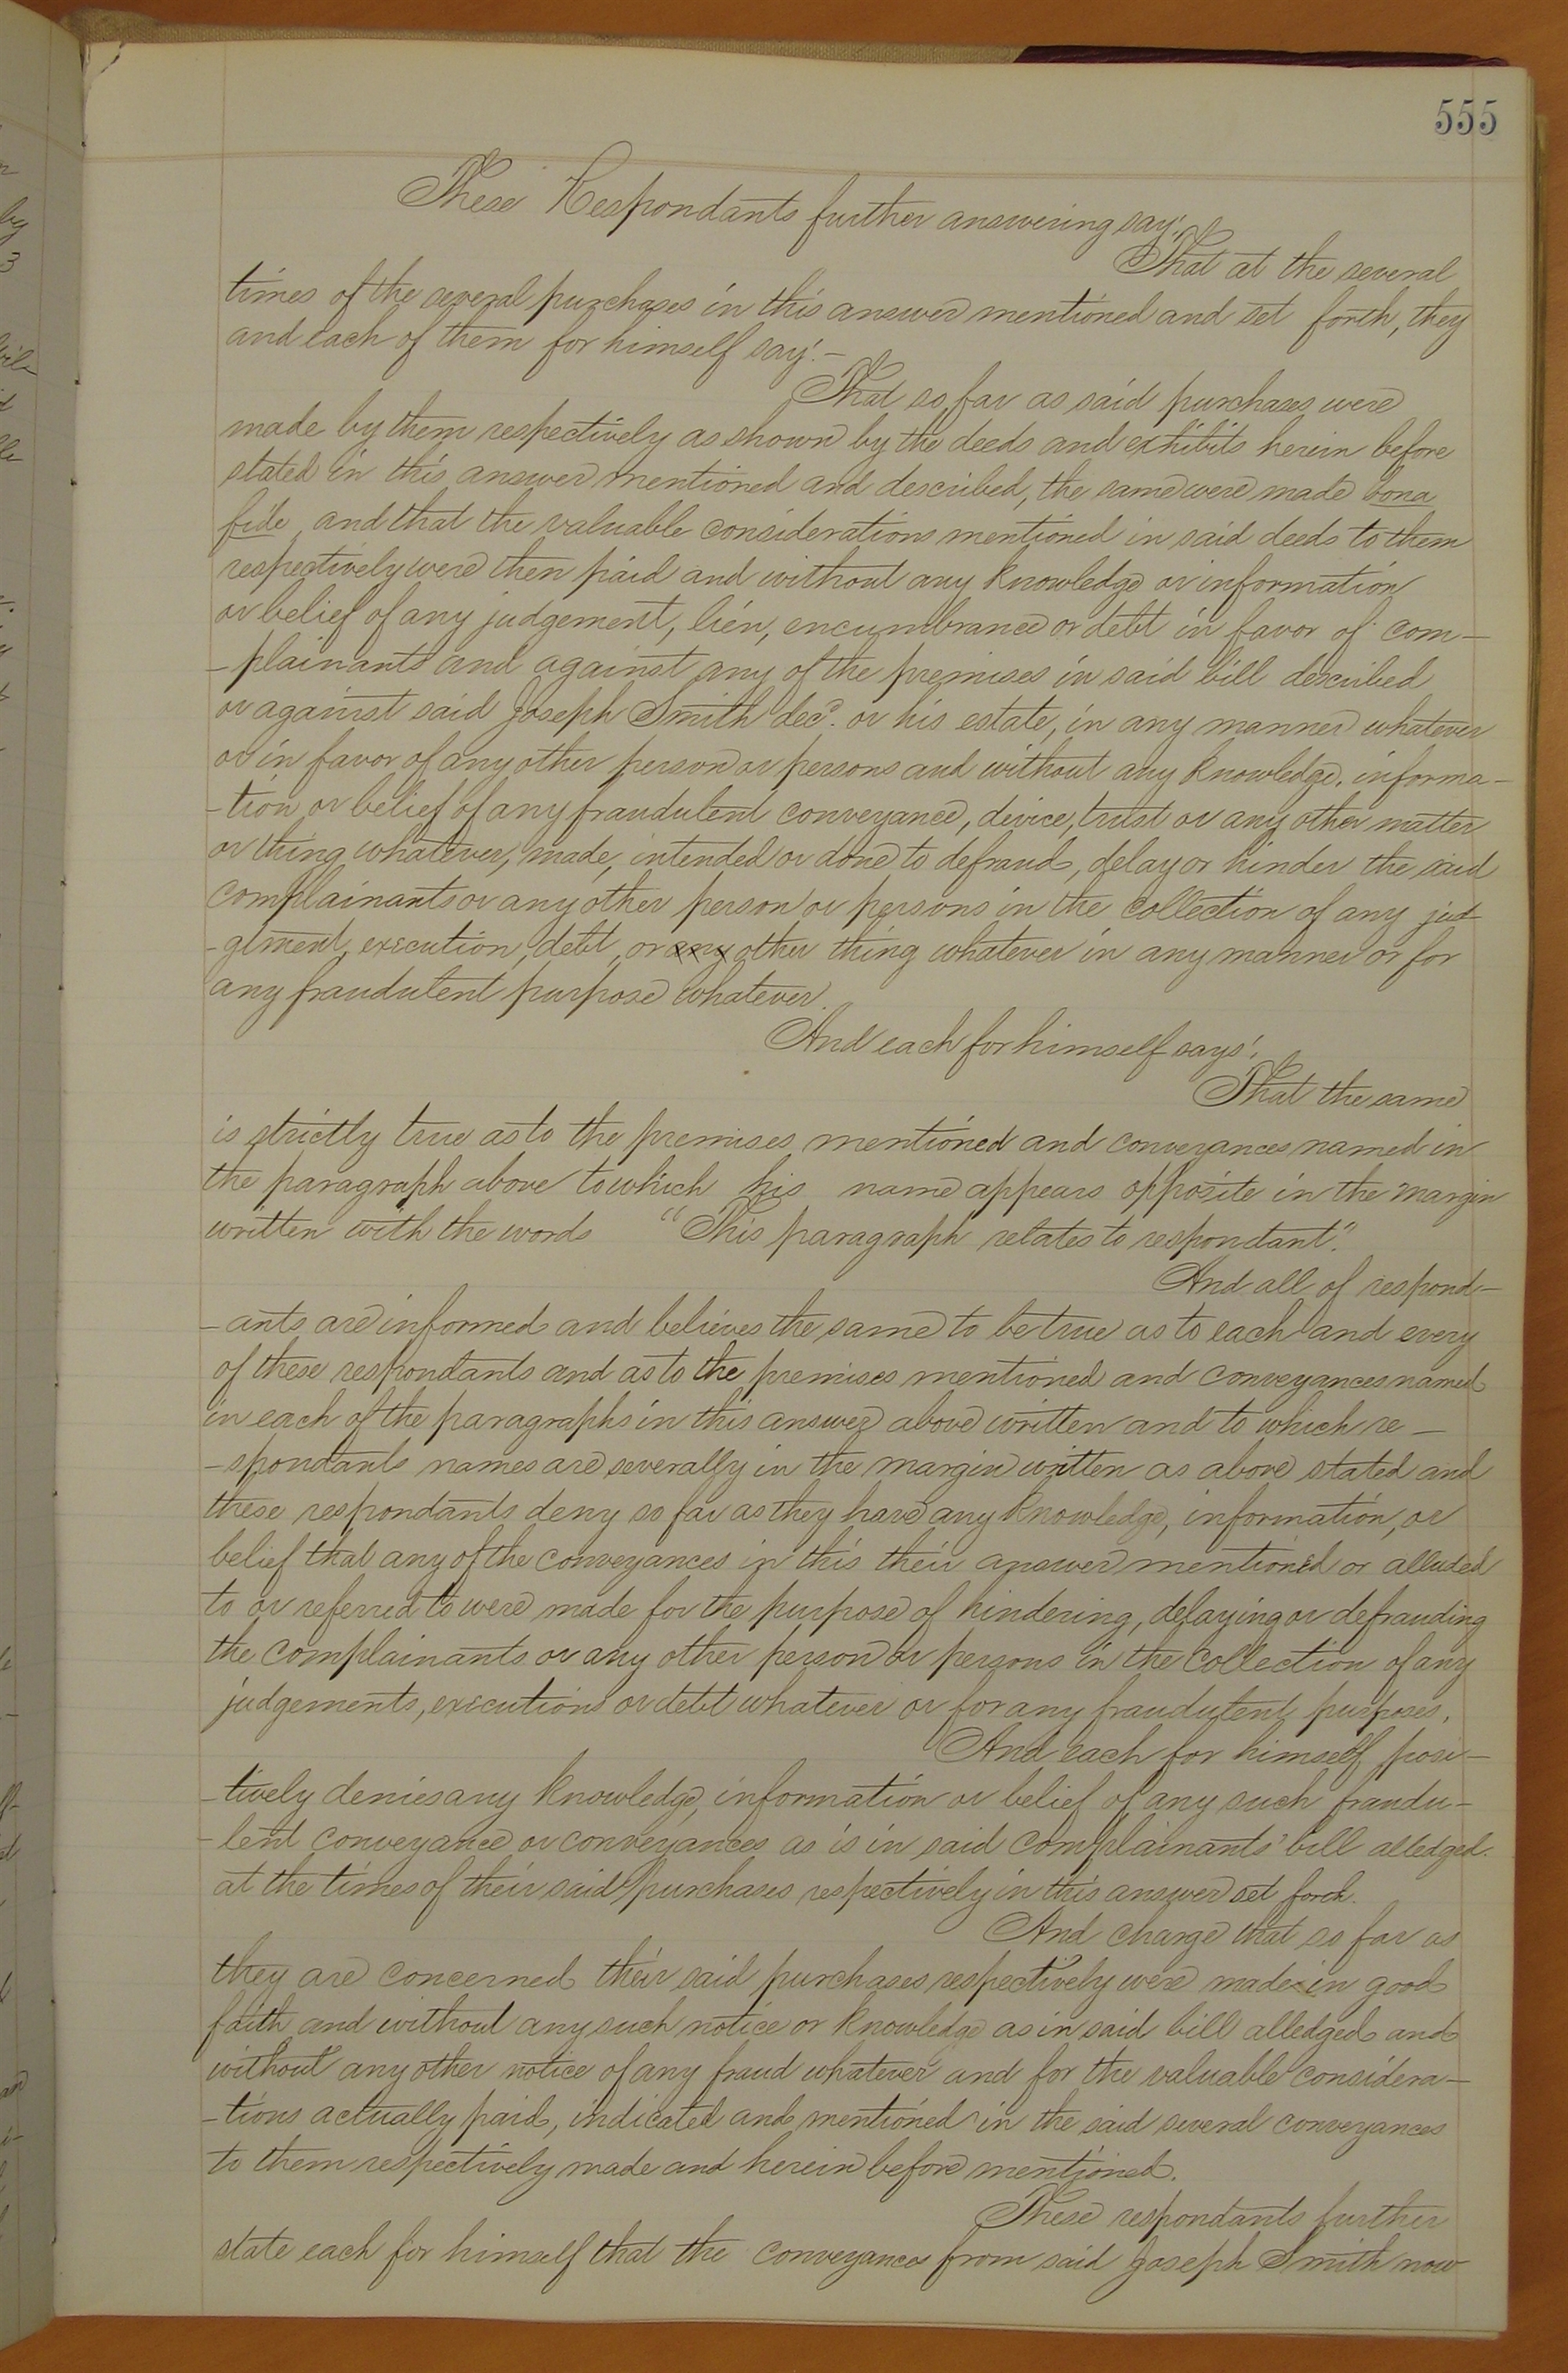 555
These Respondants further answering say!
That at the several
times of the several purchases in this answer mentioned and set forth, they
and each of them for himself say:—
That so far as said purchases were
made by them respectively as shown by the deeds and exhibits herein before
stated in this answer mentioned and described, the same were made bona
fide, and that the valuable considerations mentioned in said deeds to them
respectively were then paid and without any knowledge or information
or belief of any judgement, lien, encumbrance or debt in favor of com-
-plainants and against any of the premises in said bill described
or against said Joseph Smith decd. or his estate, in any manner whatever
or in favor of any other person or persons and without any knowledge, informa-
-tion or belief of any fraudulent conveyance, device, trust or any other matter
or thing whatever, made, intended or done to defraud, delay or hinder the said
complainants or any other person or persons in the collection of any jud-
-gement, execution, debt, or any other thing whatever in any manner or for
any fraudulent purpose whatever.
And each for himself says!
That the same
is strictly true as to the premises mentioned and conveyances named in
the paragraph above to which his name appears opposite in the margin
written with the words "This paragraph relates to respondant."
And all of respond-
-ants are informed and believes the same to be true as to each and every
of these respondants and as to the premises mentioned and conveyances named
in each of the paragraphs in this answer above written and to which re-
-spondants names are severally in the margin written as above stated and
these respondants deny so far as they have any knowledge, information, or
belief that any of the conveyances in this their answer mentioned or alluded
to or referred to were made for the purpose of hindering, delaying or defrauding
the complainants or any other person or persons in the collection of any
judgements, executions or debt whatever or for any fraudulent purposes.
And each for himself posi-
-tively denies any knowledge, information or belief of any such fraudu-
-lent conveyance or conveyances as is in said complainants' bill alledged
at the times of their said purchases respectively in this answer set forth.
And charge that so far as
they are concerned their said purchases respectively were made in good
faith and without any such notice or knowledge as in said bill alledged and
without any other notice of any fraud whatever and for the valuable considera-
-tions actually paid, indicated and mentioned in the said several conveyances
to them respectively made and herein before mentioned.
These respondants further
state each for himself that the conveyances from said Joseph Smith now